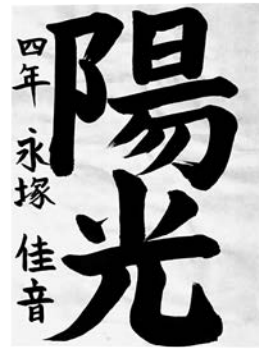 陽光
四年 永塚 佳音